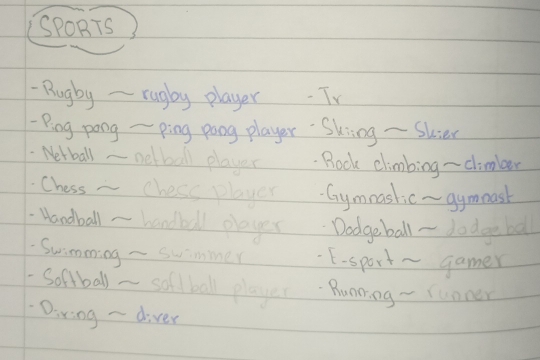 SPORTS
- Rugby ~ rugby player
- Ping pong ~ ping pong player
- Netball ~ netball player
- Chess ~ chess player
- Handball ~ handball player
- Swimming ~ swimmer
- Softball ~ softball player
- Diving ~ diver
- Tr
- Skiing ~ Skier
- Rock climbing ~ climber
- Gymnastic ~ gymnast
- Dodgeball ~ dodgeball
- E-sport ~ gamer
- Running ~ runner